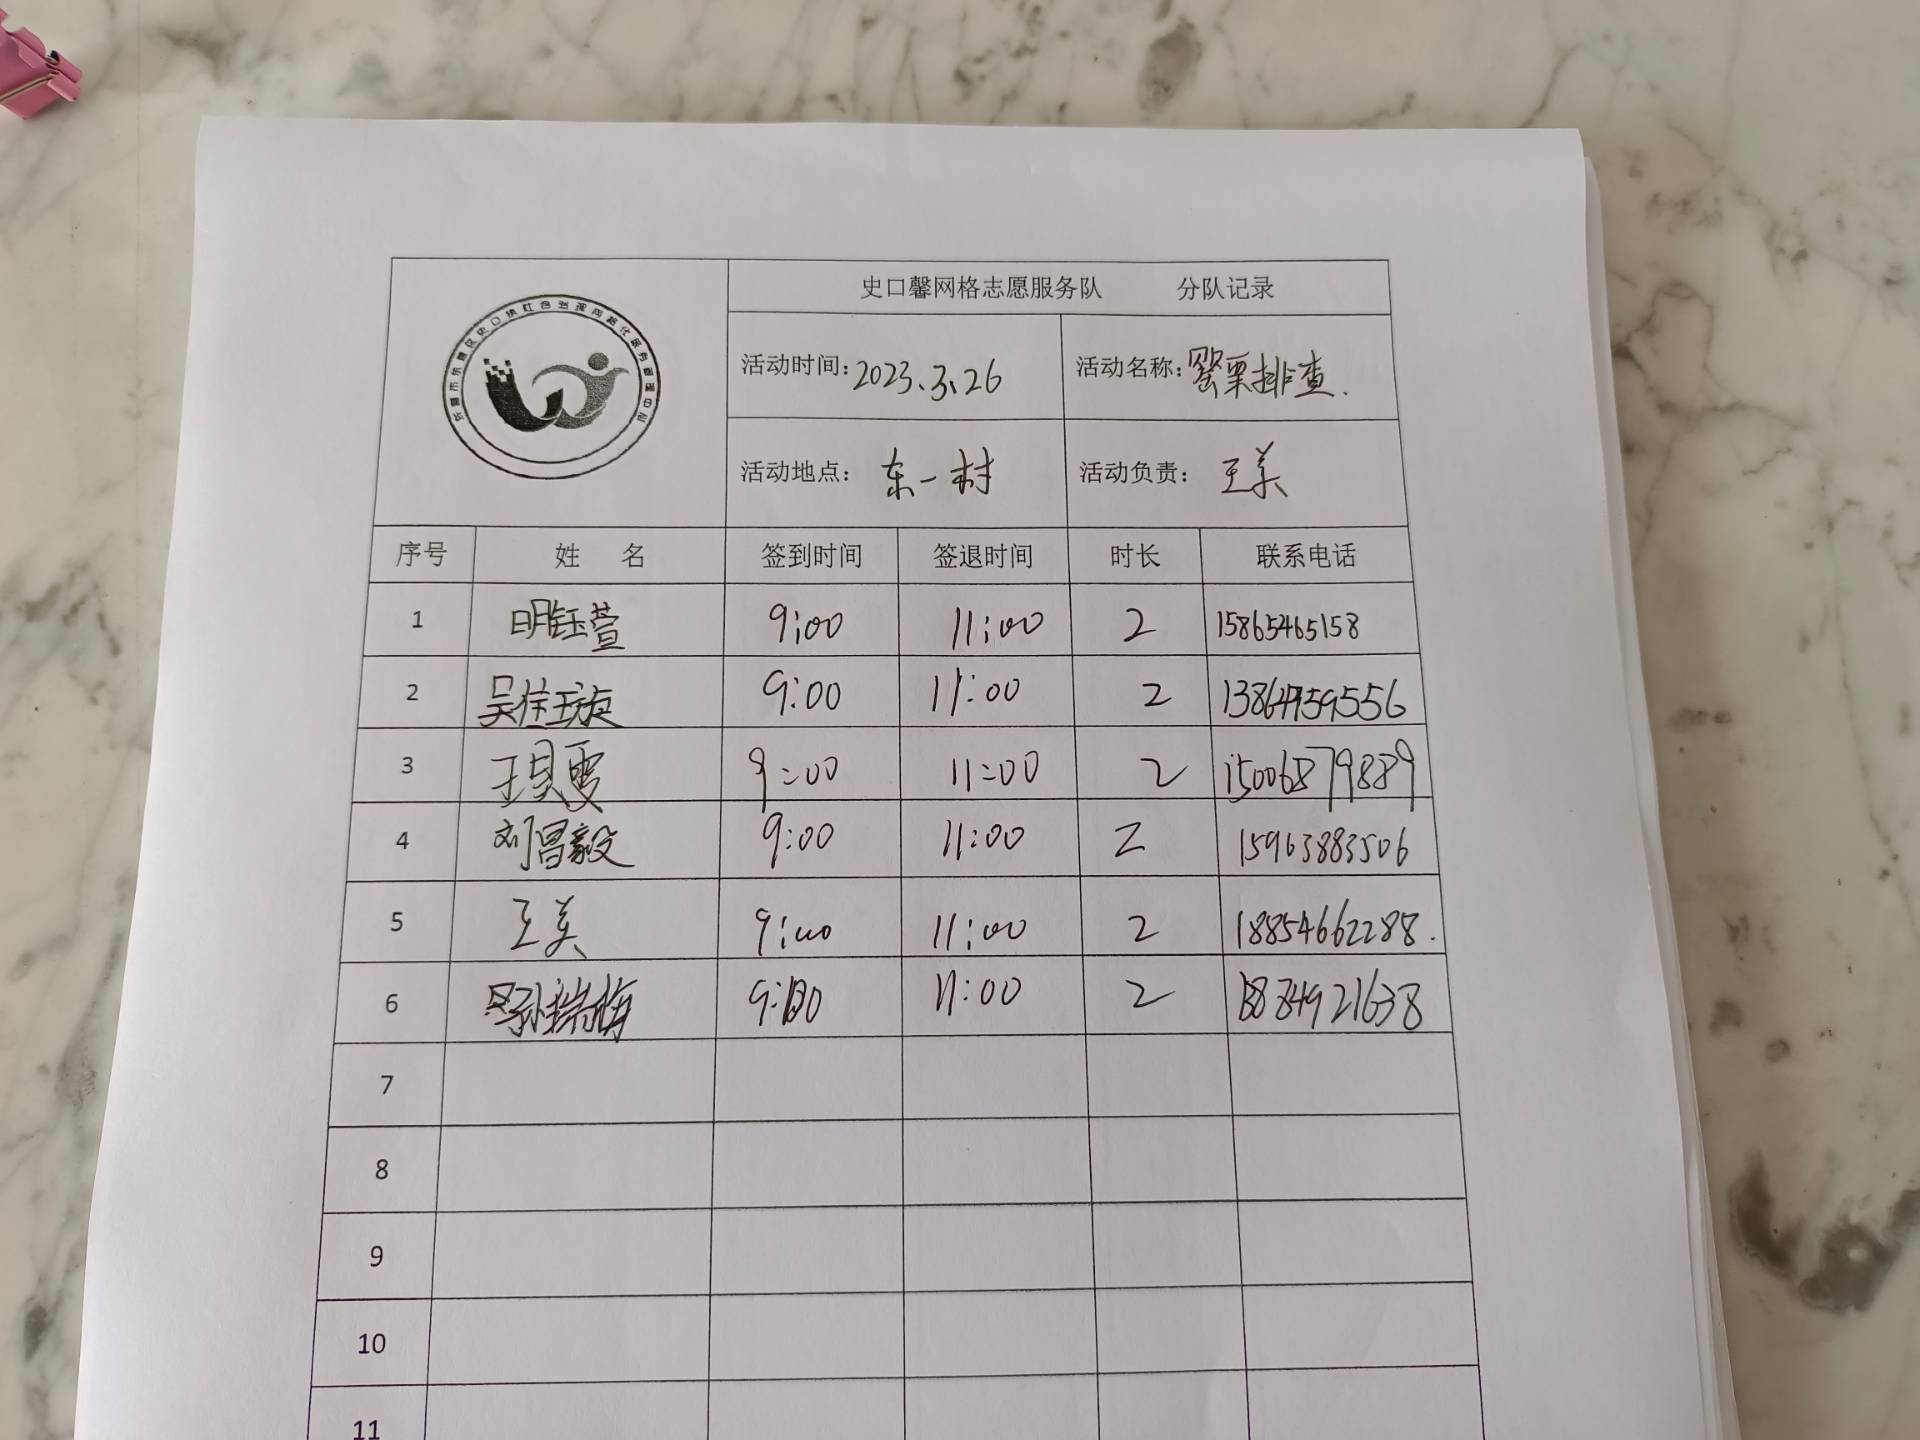 东营市东营区史口镇社会治理网格化服务管理中心
史口馨网格志愿服务队 分队记录
活动时间：2023.3.26 活动名称：罂粟排查.
活动地点：东一村 活动负责：王美
序号 姓 名 签到时间 签退时间 时长 联系电话
1 明钰萱 9:00 11:00 2 15865465158
2 吴佳璇 9:00 11:00 2
3 王贝雯 9:00 11:00 2 15006879889
4 刘昌毅 9:00 11:00 2 15963883506
5 王美 9:00 11:00 2 18854662288.
6 孙瑞梅 9:00 11:00 2
7
8
9
10
11